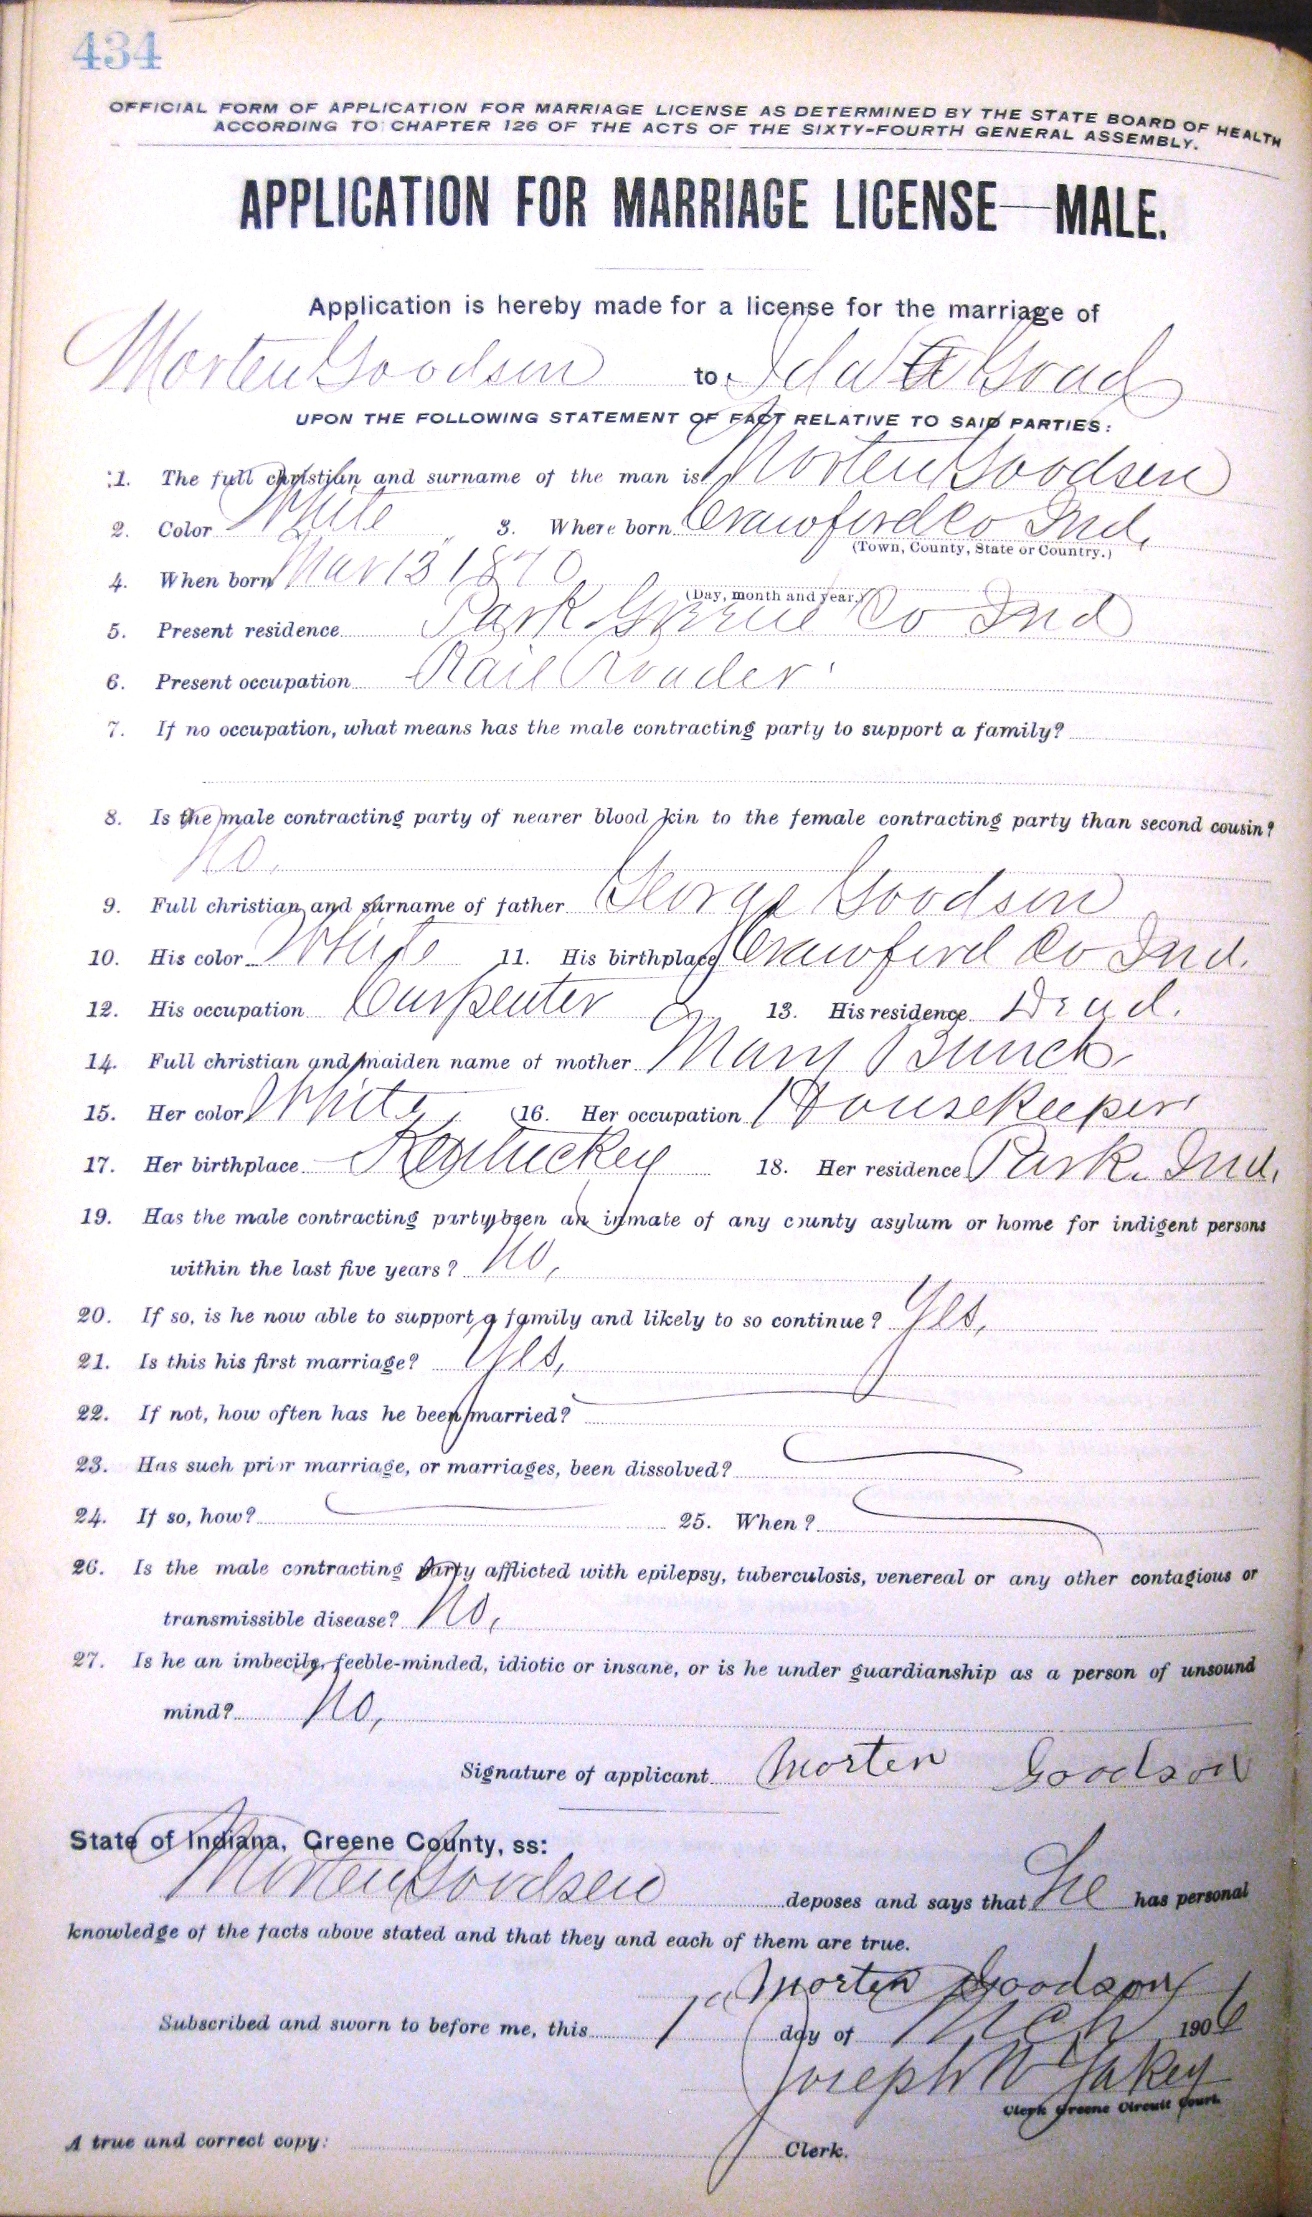 434
OFFICIAL FORM OF APPLICATION FOR MARRIAGE LICENSE AS DETERMINED BY THE STATE BOARD OF HEALTH
ACCORDING TO CHAPTER 126 OF THE ACTS OF THE SIXTY-FOURTH GENERAL ASSEMBLY.
APPLICATION FOR MARRIAGE LICENSE—MALE.
Application is hereby made for a license for the marriage of
Morten Goodsen to Ida A Goad
UPON THE FOLLOWING STATEMENT OF FACT RELATIVE TO SAID PARTIES:
1. The full christian and surname of the man is Morten Goodsen
2. Color White 3. Where born Crawford Co Ind.
(Town, County, State or Country.)
4. When born Mar 13" 1870
(Day, month and year.)
5. Present residence Park Greene Co Ind
6. Present occupation Rail Roader
7. If no occupation, what means has the male contracting party to support a family?
8. Is the male contracting party of nearer blood kin to the female contracting party than second cousin?
No.
9. Full christian and surname of father George Goodsen
10. His color White 11. His birthplace Crawford Co Ind.
12. His occupation Carpenter 13. His residence Dead.
14. Full christian and maiden name of mother Mary Bunch
15. Her color White, 16. Her occupation Housekeeper
17. Her birthplace Kentuckey 18. Her residence Park. Ind.
19. Has the male contracting party been an inmate of any county asylum or home for indigent persons
within the last five years? No,
20. If so, is he now able to support a family and likely to so continue? Yes,
21. Is this his first marriage? Yes,
22. If not, how often has he been married?
23. Has such prior marriage, or marriages, been dissolved?
24. If so, how? 25. When?
26. Is the male contracting party afflicted with epilepsy, tuberculosis, venereal or any other contagious or
transmissible disease? No,
27. Is he an imbecile, feeble-minded, idiotic or insane, or is he under guardianship as a person of unsound
mind? No,
Signature of applicant Morten Goodson
State of Indiana, Greene County, ss:
Morten Goodsen deposes and says that he has personal
knowledge of the facts above stated and that they and each of them are true.
Morten Goodson
Subscribed and sworn to before me, this 1" day of Mch 1906
Joseph W Yakey
Clerk Greene Circuit Court.
A true and correct copy: Clerk.